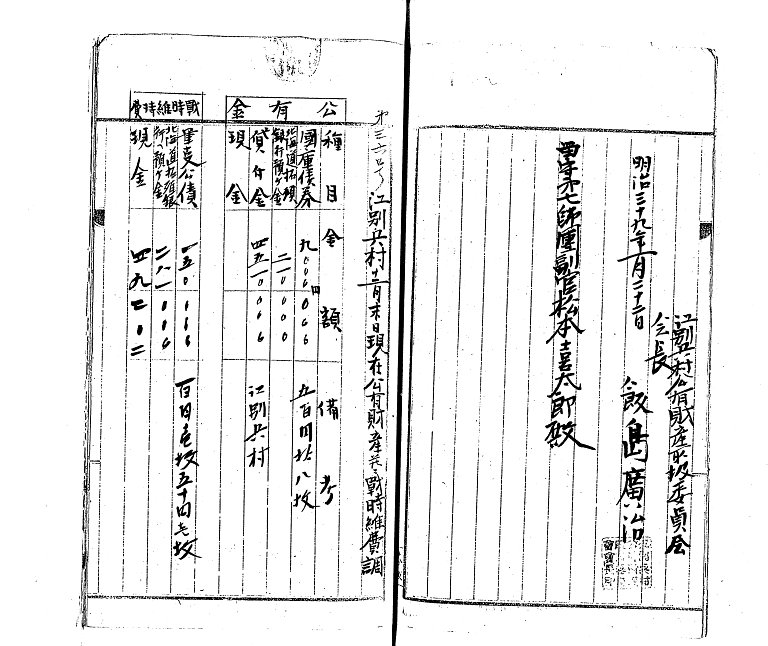 江別兵村公有財産取扱委員会
会長 飯島廣治
明治三十九年一月二十二日
留守第七師團副官松本喜太郎殿
第三六号 江別兵村十二月末日現在公有財産并戰時維費調
公有金
種目 金額 備考
國庫債券 九〇〇〇円〇〇〇 五百円券八枚
北海道拓殖銀行預ケ金
貸付金 江別兵村
現金
戰時維持費
軍事公債 一五〇〇〇〇 百円壱枚五十円壱枚
北海道拓殖銀行預ケ金
現金 四九二〇二